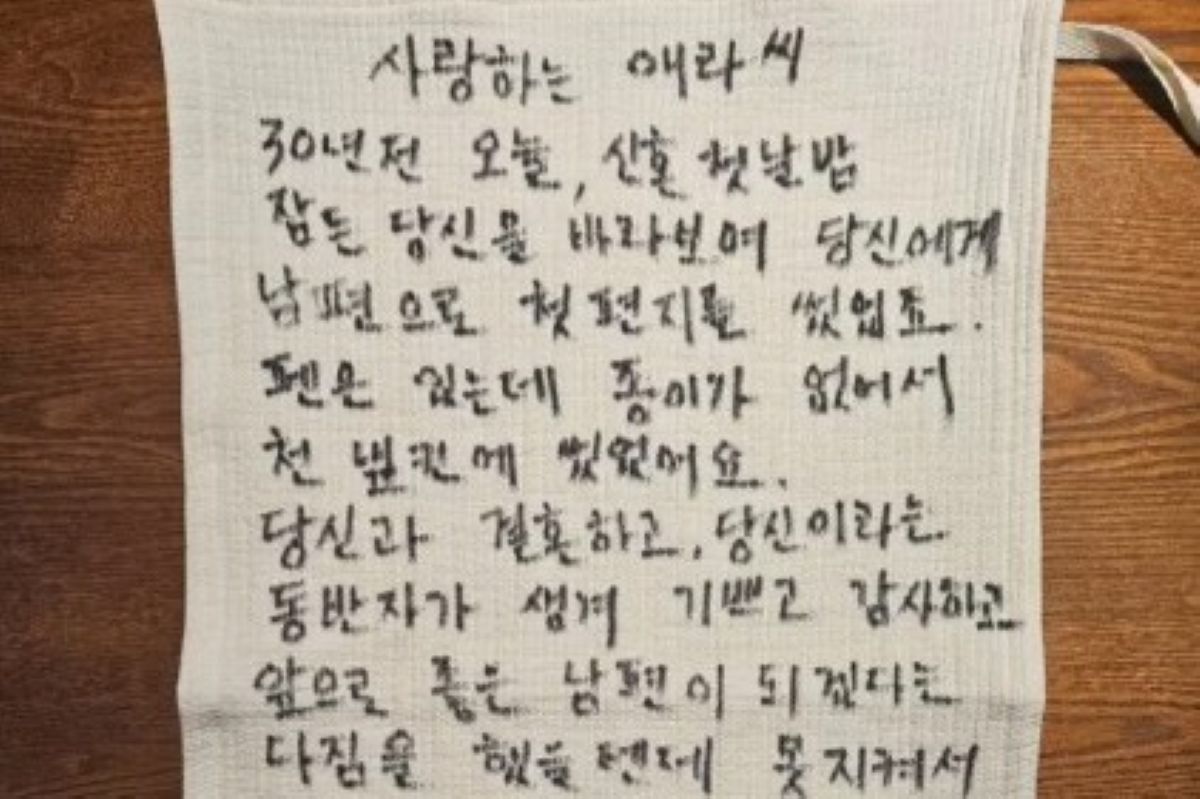 사랑하는 애라씨
30년전 오늘, 신혼 첫날밤
잠든 당신을 바라보며 당신에게
남편으로 첫편지를 썼었죠.
펜은 있는데 종이가 없어서
천 냅킨에 썼었어요.
당신과 결혼하고, 당신이라는
동반자가 생겨 기쁘고 감사하고
앞으로 좋은 남편이 되겠다는
다짐을 했을텐데 못지켜서